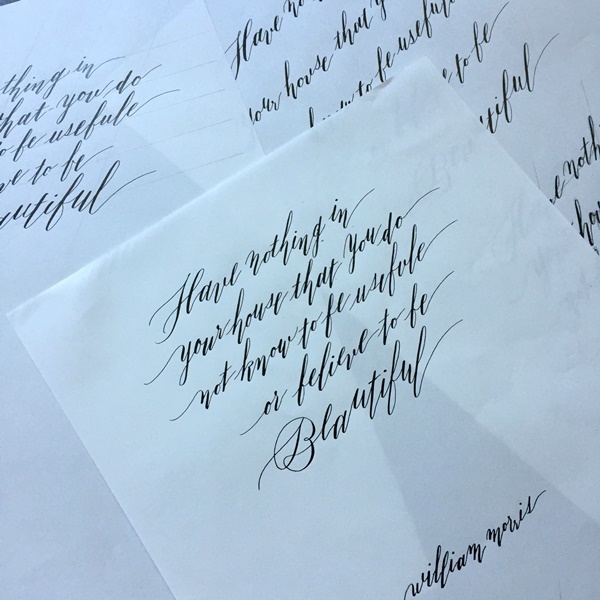 thing in
hat you do
to be usefule
ve to be
autiful
Have no
your house that y
know to be usefule
to be
tiful
Have nothing in
your house that you do
not know to be usefule
or believe to be
Beautiful
william morris